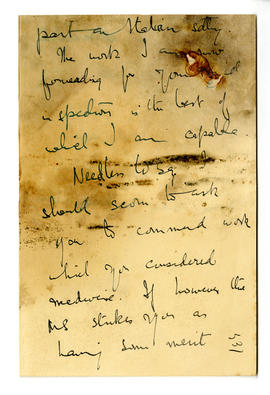 part an Italian salty.
The work I am now
forwarding for your kind
inspection is the best of
which I am capable.
Needless to say I
should scorn to ask
you to commend work
which you considered
mediocre. If however the
MS strikes you as
having some merit